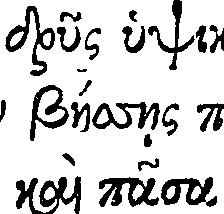 δρῦς ὑψικ
βήσσῃς π
καὶ πᾶσα